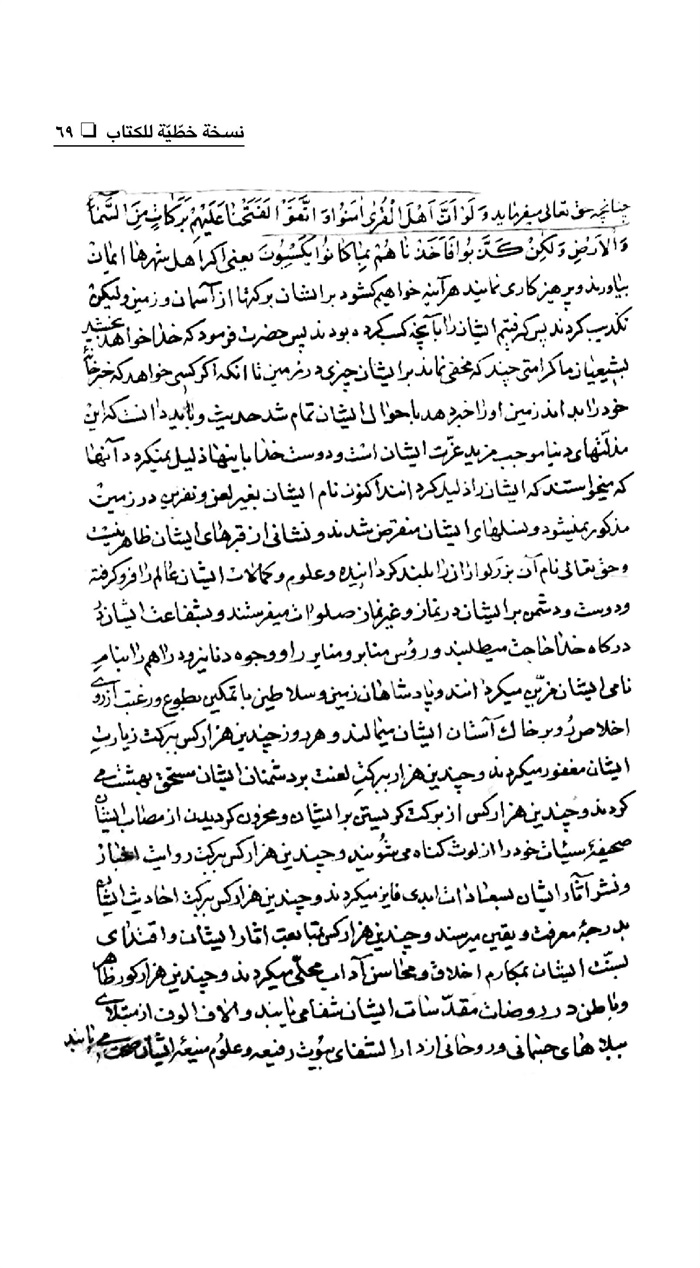 نسخة خطّيّة للكتاب ❏ ٦٩
چنانچه حق تعالی میفرماید وَلَوْ اَنَّ اَهْلَ الْقُرٰی اٰمَنُوا وَ اتَّقَوْا لَفَتَحْنا عَلَیْهِمْ بَرَکاتٍ مِنَ السَّمآءِ
وَالْاَرْضِ وَلٰکِنْ کَذَّبُوا فَاَخَذْناهُمْ بِما کانُوا یَکْسِبُونَ یعنی اکر اهل شهرها ایمان
بیاورند و پرهیزکاری نمایند هرآینه خواهیم کشود بر ایشان برکتها از آسمان و زمین ولیکن
تکذیب کردند پس کرفتیم ایشان را بآنچه کسب کرده بودند پس حضرت فرمود که خدا خواهد بخشید
بشیعیان ما کرامتی چند که مخفی نماند بر ایشان چیزی در زمین تا آنکه اکر کسی خواهد که خبر خانهٔ
خود را بداند زمین او را خبر دهد باحوال ایشان تمام شد حدیث و باید دانست که این
مذلّتهای دنیا موجب مزید عزّت ایشان است و دوست خدا باینها ذلیل نمیکردد آنها
که میخواستند که ایشان را ذلیل کردانند اکنون نام ایشان بغیر لعن و نفرین در زمین
مذکور نمیشود و نسلهای ایشان منقرض شدند و نشانی از قبرهای ایشان ظاهر نیست
و حق تعالی نام آن بزرکواران را بلند کردانیده و علوم و کمالات ایشان عالم را فرو کرفته
و دوست و دشمن بر ایشان در نماز و غیر نماز صلوات میفرستند و بشفاعت ایشان در
درکاه خدا حاجت میطلبند و رؤس منابر و منایر را و وجوه دنانیر و دراهم را بنام
نامی ایشان مزیّن میکردانند و پادشاهان زمین و سلاطین با تمکین بطوع و رغبت از روی
اخلاص رُو بر خاک آستان ایشان میمالند و هر روز چندین هزار کس ببرکت زیارت
ایشان مغفور میکردند و چندین هزار ببرکت لعنت بر دشمنان ایشان مستحق بهشت می
کردند و چندین هزار کس از برکت کریستن بر ایشان و محزون کردیدن از مصائب ایشان
صحیفهٔ سیّئات خود را از لوث کناه می‌شویند و چندین هزار کس ببرکت روایت اخبار
و نشر آثار ایشان بسعادات ابدی فایز میکردند و چندین هزار کس ببرکت احادیث ایشان
بدرجهٔ معرفت و یقین میرسند و چندین هزار کس بمتابعت آثار ایشان و اقتدای
بسنّت ایشان بمکارم اخلاق و محاسن آداب محلّی میکردند و چندین هزار کور ظاهر
و باطن در روضات مقدّسات ایشان شفا می‌یابند و آلاف الوف از مبتلای
ببلاهای جسمانی و روحانی از دار الشفای بیوت رفیعه و علوم منیعهٔ ایشان صحت می‌یابند